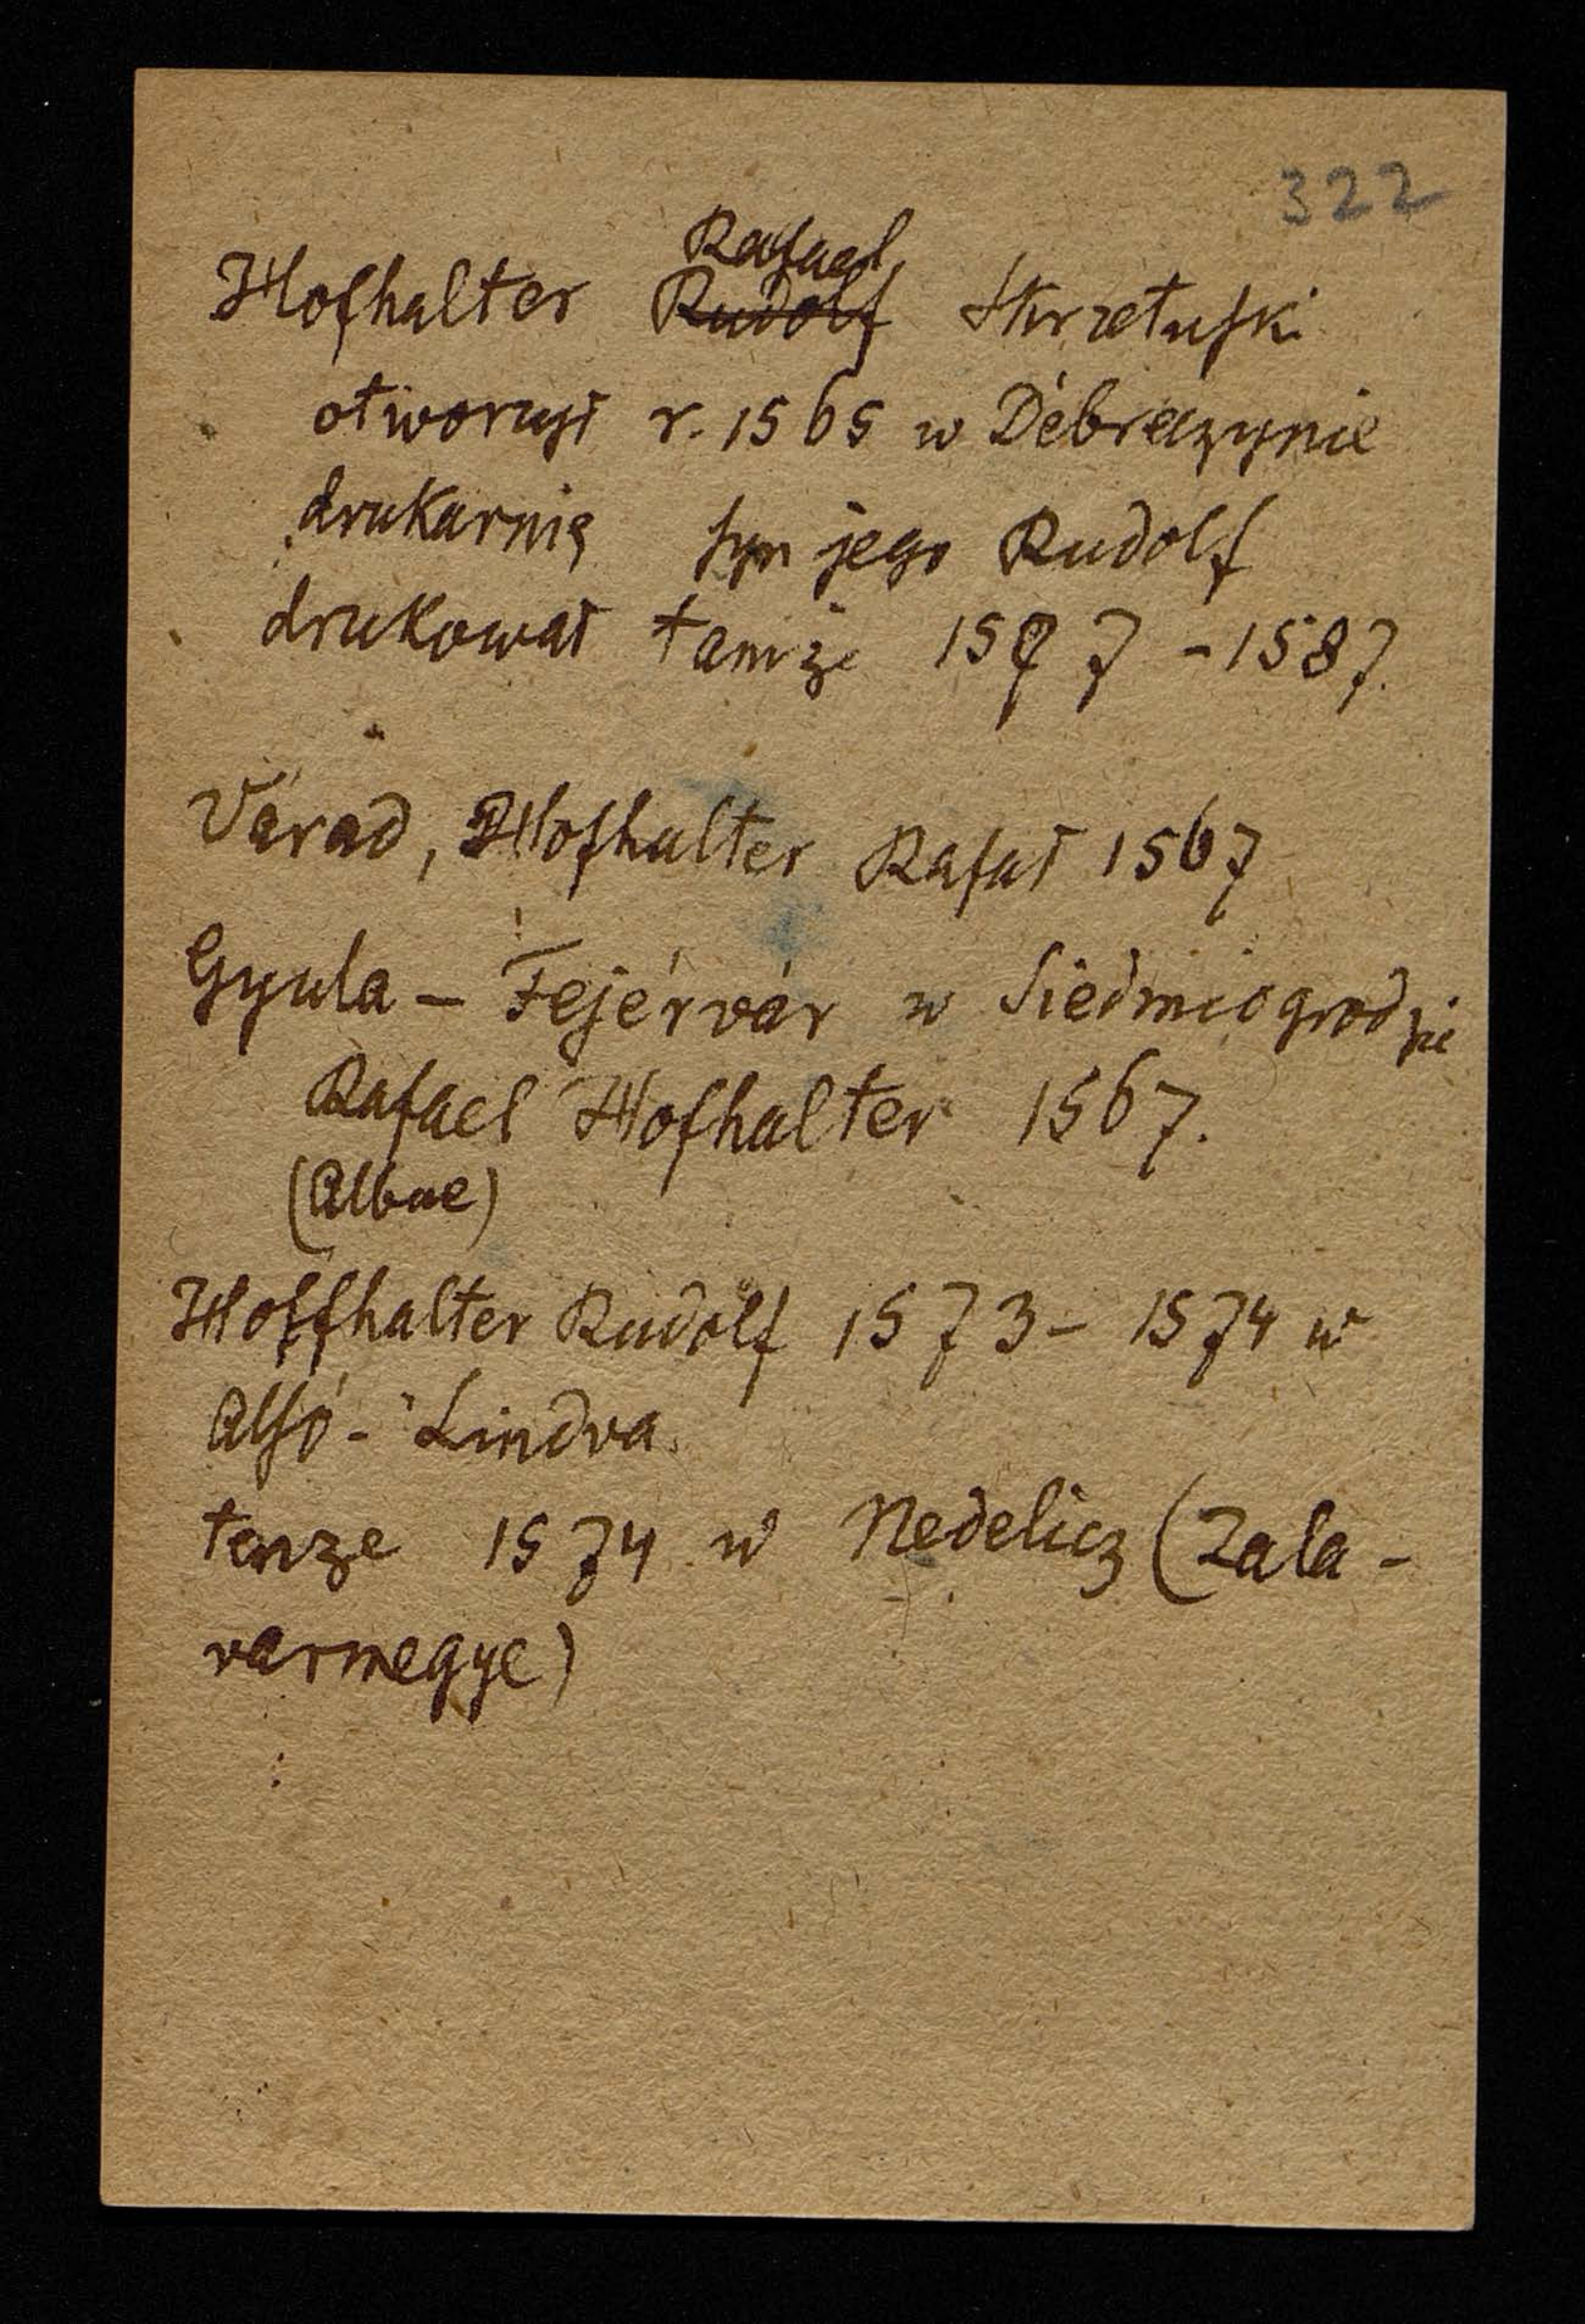 322
Rafael
Hofhalter Rudolf Skrzetuski
otworzył r. 1565 w Debreczynie
drukarnię syn jego Rudolf
drukował tamże 1577 - 1587.
Várad, Hofhalter Rafał 1567
Gyula - Fejérvár w Siedmiogrodzie
Rafael Hofhalter 1567.
(Albae)
Hoffhalter Rudolf 1573 - 1574 w
Alsó - Lindva
tenże 1574 w Nedelicz (Zala -
varmegye)